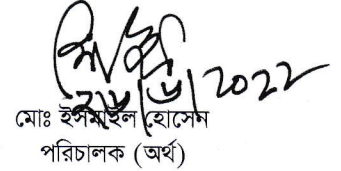 ২৮/৬/2022
মোঃ ইসমাইল হোসেন
পরিচালক (অর্থ)